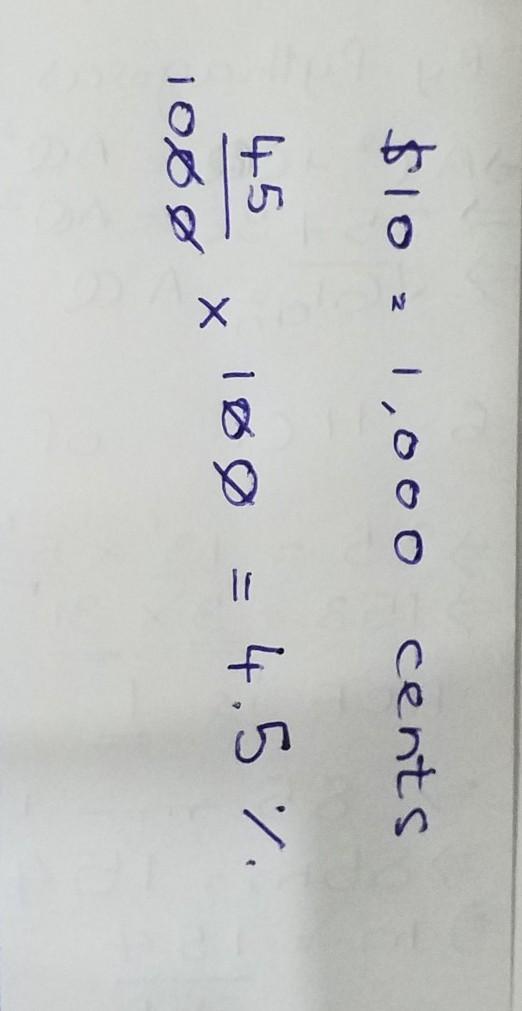 $10 = 1,000 cents
45/1000 × 100 = 4.5 %